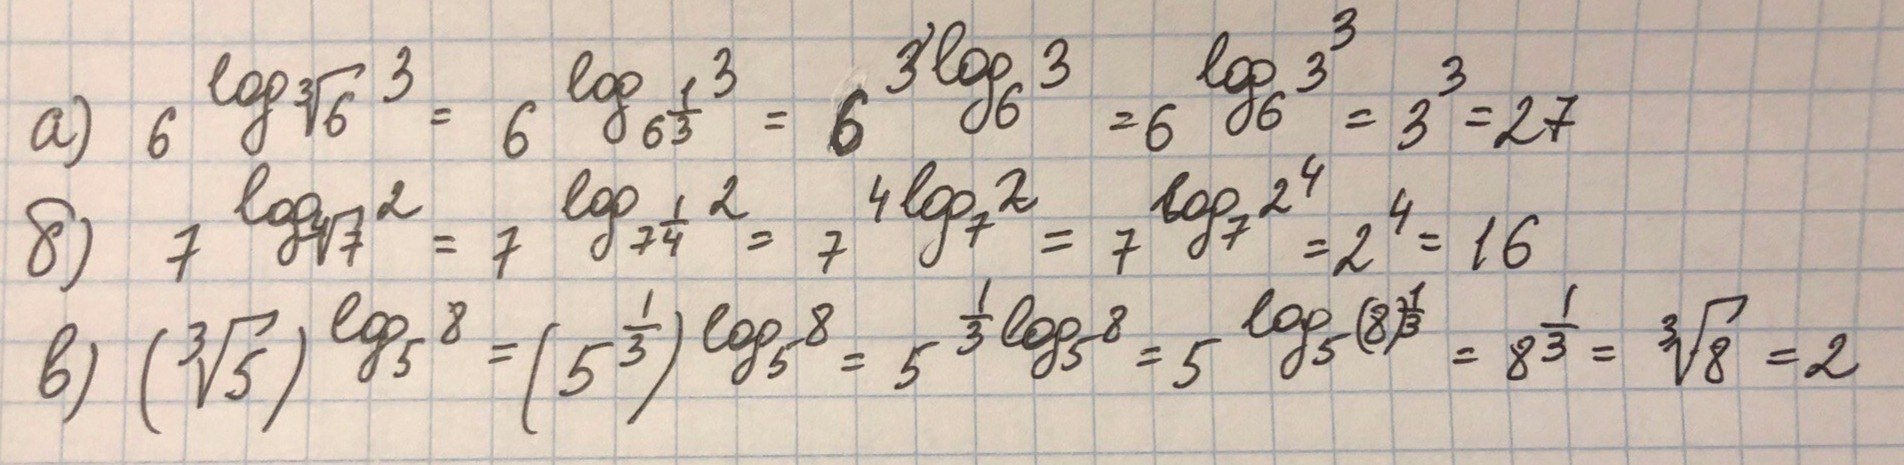 а) 6^{log_{∛6} 3} = 6^{log_{6^{1/3}} 3} = 6^{3 log_6 3} = 6^{log_6 3^3} = 3^3 = 27
б) 7^{log_{∜7} 2} = 7^{log_{7^{1/4}} 2} = 7^{4 log_7 2} = 7^{log_7 2^4} = 2^4 = 16
в) (∛5)^{log_5 8} = (5^{1/3})^{log_5 8} = 5^{1/3 log_5 8} = 5^{log_5 (8)^{1/3}} = 8^{1/3} = ∛8 = 2